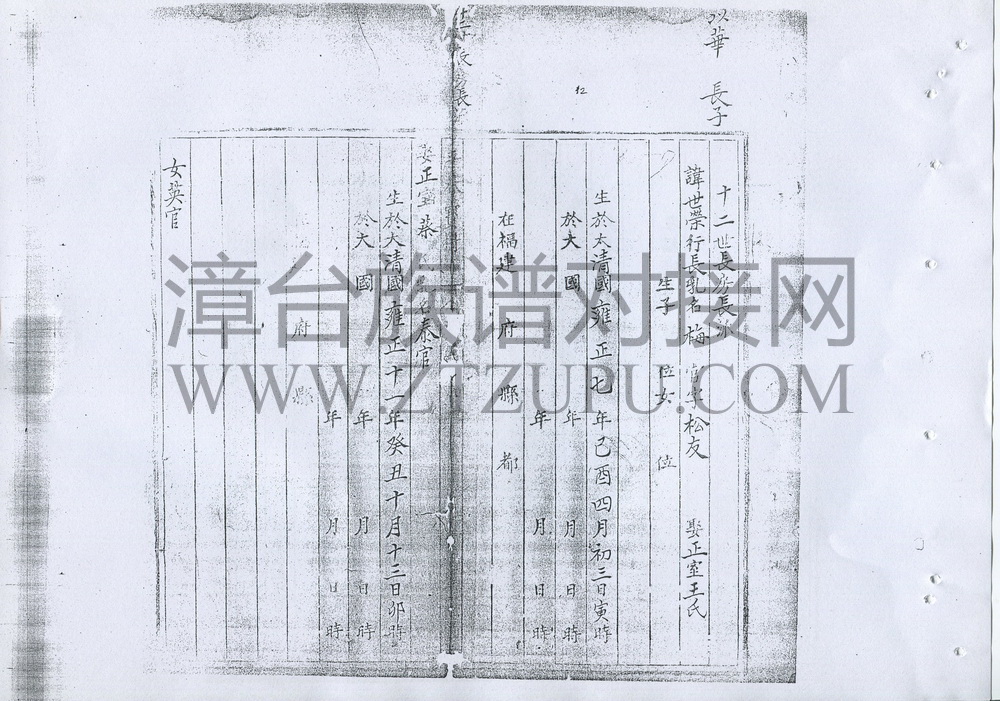 華 長子
12
十二世長房長
諱世榮行長乳名梅官字松友 娶正室王氏
生子 位女 位
生於大清國雍正七年己酉四月初三日寅時
於大 國 年 月 日 時
年 月 日 時
在福建 府 縣 都
娶正室蔡 名泰官
生於大清國雍正十一年癸丑十月十三日卯時
於大 國 年 月 日 時
年 月 日 時
府 縣
女英官
漳台族谱对接网
WWW.ZTZUPU.COM